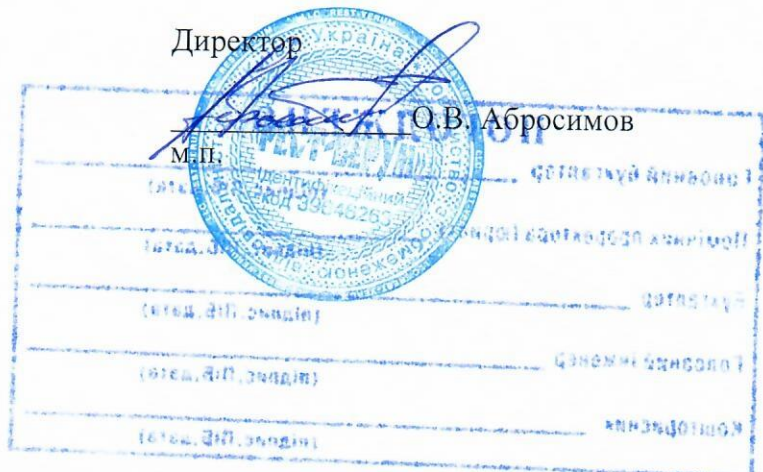 Директор
О.В. Абросимов
м.п.
Україна
Ідентифікаційний
код
Головний бухгалтер
(підпис, ПІБ, дата)
Помічник проректора (юрист)
(підпис, ПІБ, дата)
Бухгалтер
(підпис, ПІБ, дата)
Головний інженер
(підпис, ПІБ, дата)
Кошторисник
(підпис, ПІБ, дата)